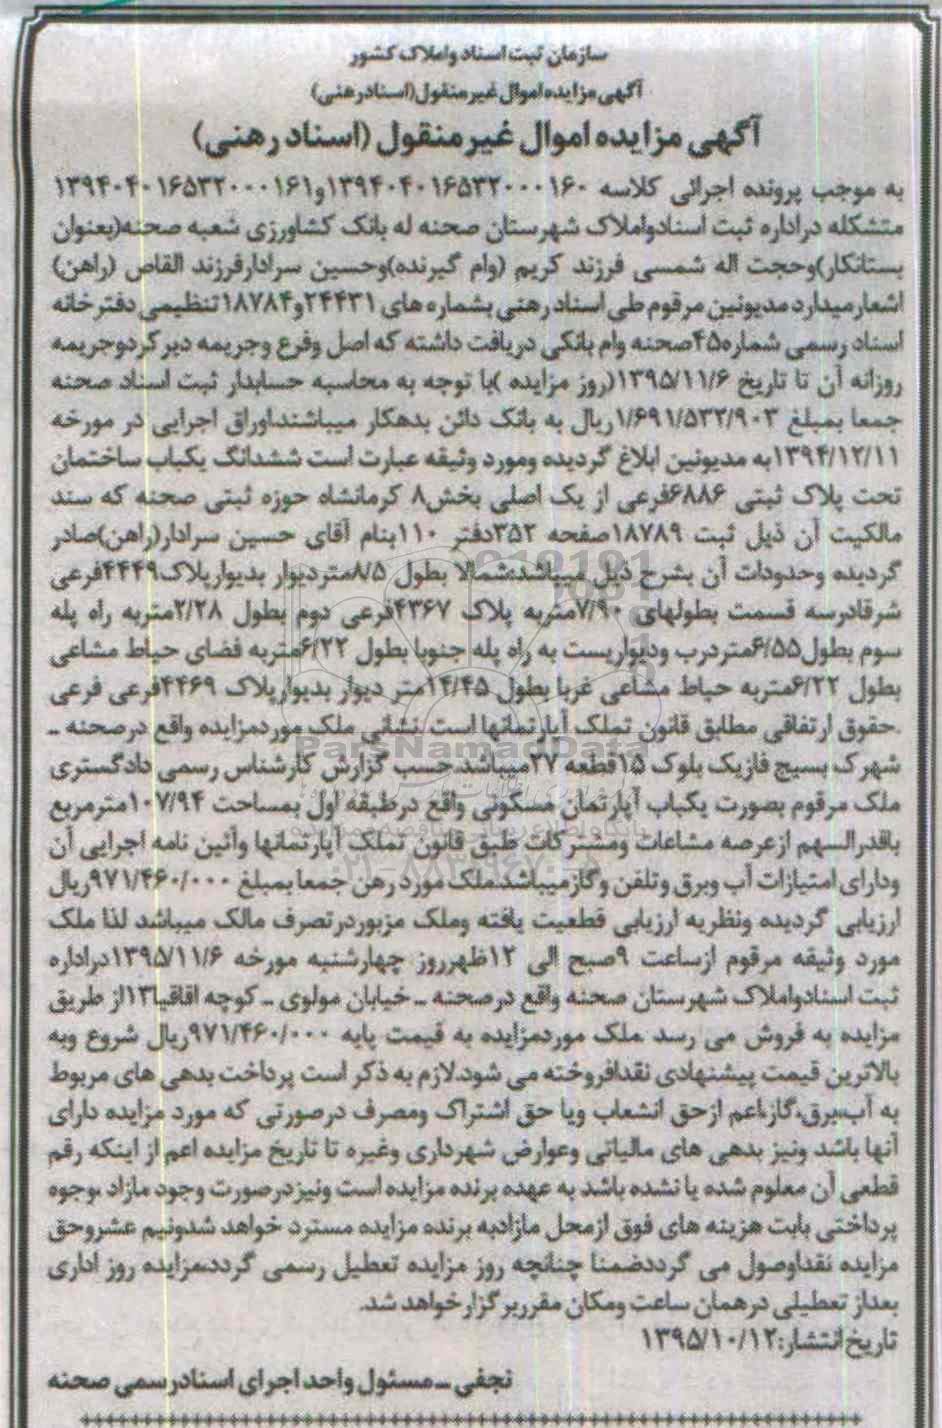 سازمان ثبت اسناد واملاک کشور
آگهی مزایده اموال غیر منقول(اسنادرهنی)
آگهی مزایده اموال غیر منقول (اسناد رهنی)
به موجب پرونده اجرائی کلاسه ۱۳۹۴۰۴۰۱۶۵۳۲۰۰۰۱۶۰و۱۳۹۴۰۴۰۱۶۵۳۲۰۰۰۱۶۱
متشکله دراداره ثبت اسنادواملاک شهرستان صحنه له بانک کشاورزی شعبه صحنه(بعنوان
بستانکار)وحجت اله شمسی فرزند کریم (وام گیرنده)وحسین سرادارفرزند القاص (راهن)
اشعارمیدارد مدیونین مرقوم طی اسناد رهنی بشماره های ۲۴۴۳۱و۱۸۷۸۴تنظیمی دفترخانه
اسناد رسمی شماره۴۵صحنه وام بانکی دریافت داشته که اصل وفرع وجریمه دیرکردوجریمه
روزانه آن تا تاریخ ۱۳۹۵/۱۱/۶(روز مزایده )با توجه به محاسبه حسابدار ثبت اسناد صحنه
جمعا بمبلغ ۱/۶۹۱/۵۳۲/۹۰۳ریال به بانک دائن بدهکار میباشند.اوراق اجرایی در مورخه
۱۳۹۴/۱۲/۱۱به مدیونین ابلاغ گردیده ومورد وثیقه عبارت است ششدانگ یکباب ساختمان
تحت پلاک ثبتی ۶۸۸۶فرعی از یک اصلی بخش۸ کرمانشاه حوزه ثبتی صحنه که سند
مالکیت آن ذیل ثبت ۱۸۷۸۹صفحه ۳۵۲دفتر ۱۱۰بنام آقای حسین سرادار(راهن)صادر
گردیده وحدودات آن بشرح ذیل میباشد:شمالا بطول ۸/۵متردیوار بدیوارپلاک۴۴۴۹فرعی
شرقادرسه قسمت بطولهای ۷/۹۰متربه پلاک ۴۳۶۷فرعی دوم بطول ۲/۲۸متربه راه پله
سوم بطول۶/۵۵متردرب ودیواریست به راه پله جنوبا بطول ۶/۲۲متربه فضای حیاط مشاعی
بطول ۶/۲۲متربه حیاط مشاعی غربا بطول ۱۴/۴۵متر دیوار بدیوارپلاک ۴۴۶۹فرعی فرعی
.حقوق ارتفاقی مطابق قانون تملک آپارتمانها است .نشانی ملک موردمزایده واقع درصحنه ـ
شهرک بسیج فازیک بلوک ۱۵قطعه ۲۷میباشد.حسب گزارش کارشناس رسمی دادگستری
ملک مرقوم بصورت یکباب آپارتمان مسکونی واقع درطبقه اول بمساحت ۱۰۷/۹۴مترمربع
باقدرالسهم ازعرصه مشاعات ومشترکات طبق قانون تملک آپارتمانها وآئین نامه اجرایی آن
ودارای امتیازات آب وبرق وتلفن وگازمیباشد.ملک مورد رهن جمعا بمبلغ ۹۷۱/۴۶۰/۰۰۰ریال
ارزیابی گردیده ونظریه ارزیابی قطعیت یافته وملک مزبوردرتصرف مالک میباشد لذا ملک
مورد وثیقه مرقوم ازساعت ۹صبح الی ۱۲ظهرروز چهارشنبه مورخه ۱۳۹۵/۱۱/۶دراداره
ثبت اسنادواملاک شهرستان صحنه واقع درصحنه ـ خیابان مولوی ـ کوچه اقاقیا۱۳از طریق
مزایده به فروش می رسد .ملک موردمزایده به قیمت پایه ۹۷۱/۴۶۰/۰۰۰ریال شروع وبه
بالاترین قیمت پیشنهادی نقدافروخته می شود.لازم به ذکر است پرداخت بدهی های مربوط
به آب،برق،گاز،اعم ازحق انشعاب ویا حق اشتراک ومصرف درصورتی که مورد مزایده دارای
آنها باشد ونیز بدهی های مالیاتی وعوارض شهرداری وغیره تا تاریخ مزایده اعم از اینکه رقم
قطعی آن معلوم شده یا نشده باشد به عهده برنده مزایده است ونیزدرصورت وجود مازاد ،وجوه
پرداختی بابت هزینه های فوق ازمحل مازادبه برنده مزایده مسترد خواهد شدونیم عشروحق
مزایده نقداوصول می گرددضمنا چنانچه روز مزایده تعطیل رسمی گردد،مزایده روز اداری
بعداز تعطیلی درهمان ساعت ومکان مقرربرگزارخواهد شد.
تاریخ انتشار:۱۳۹۵/۱۰/۱۲
نجفی ـ مسئول واحد اجرای اسنادرسمی صحنه
ParsNamadData